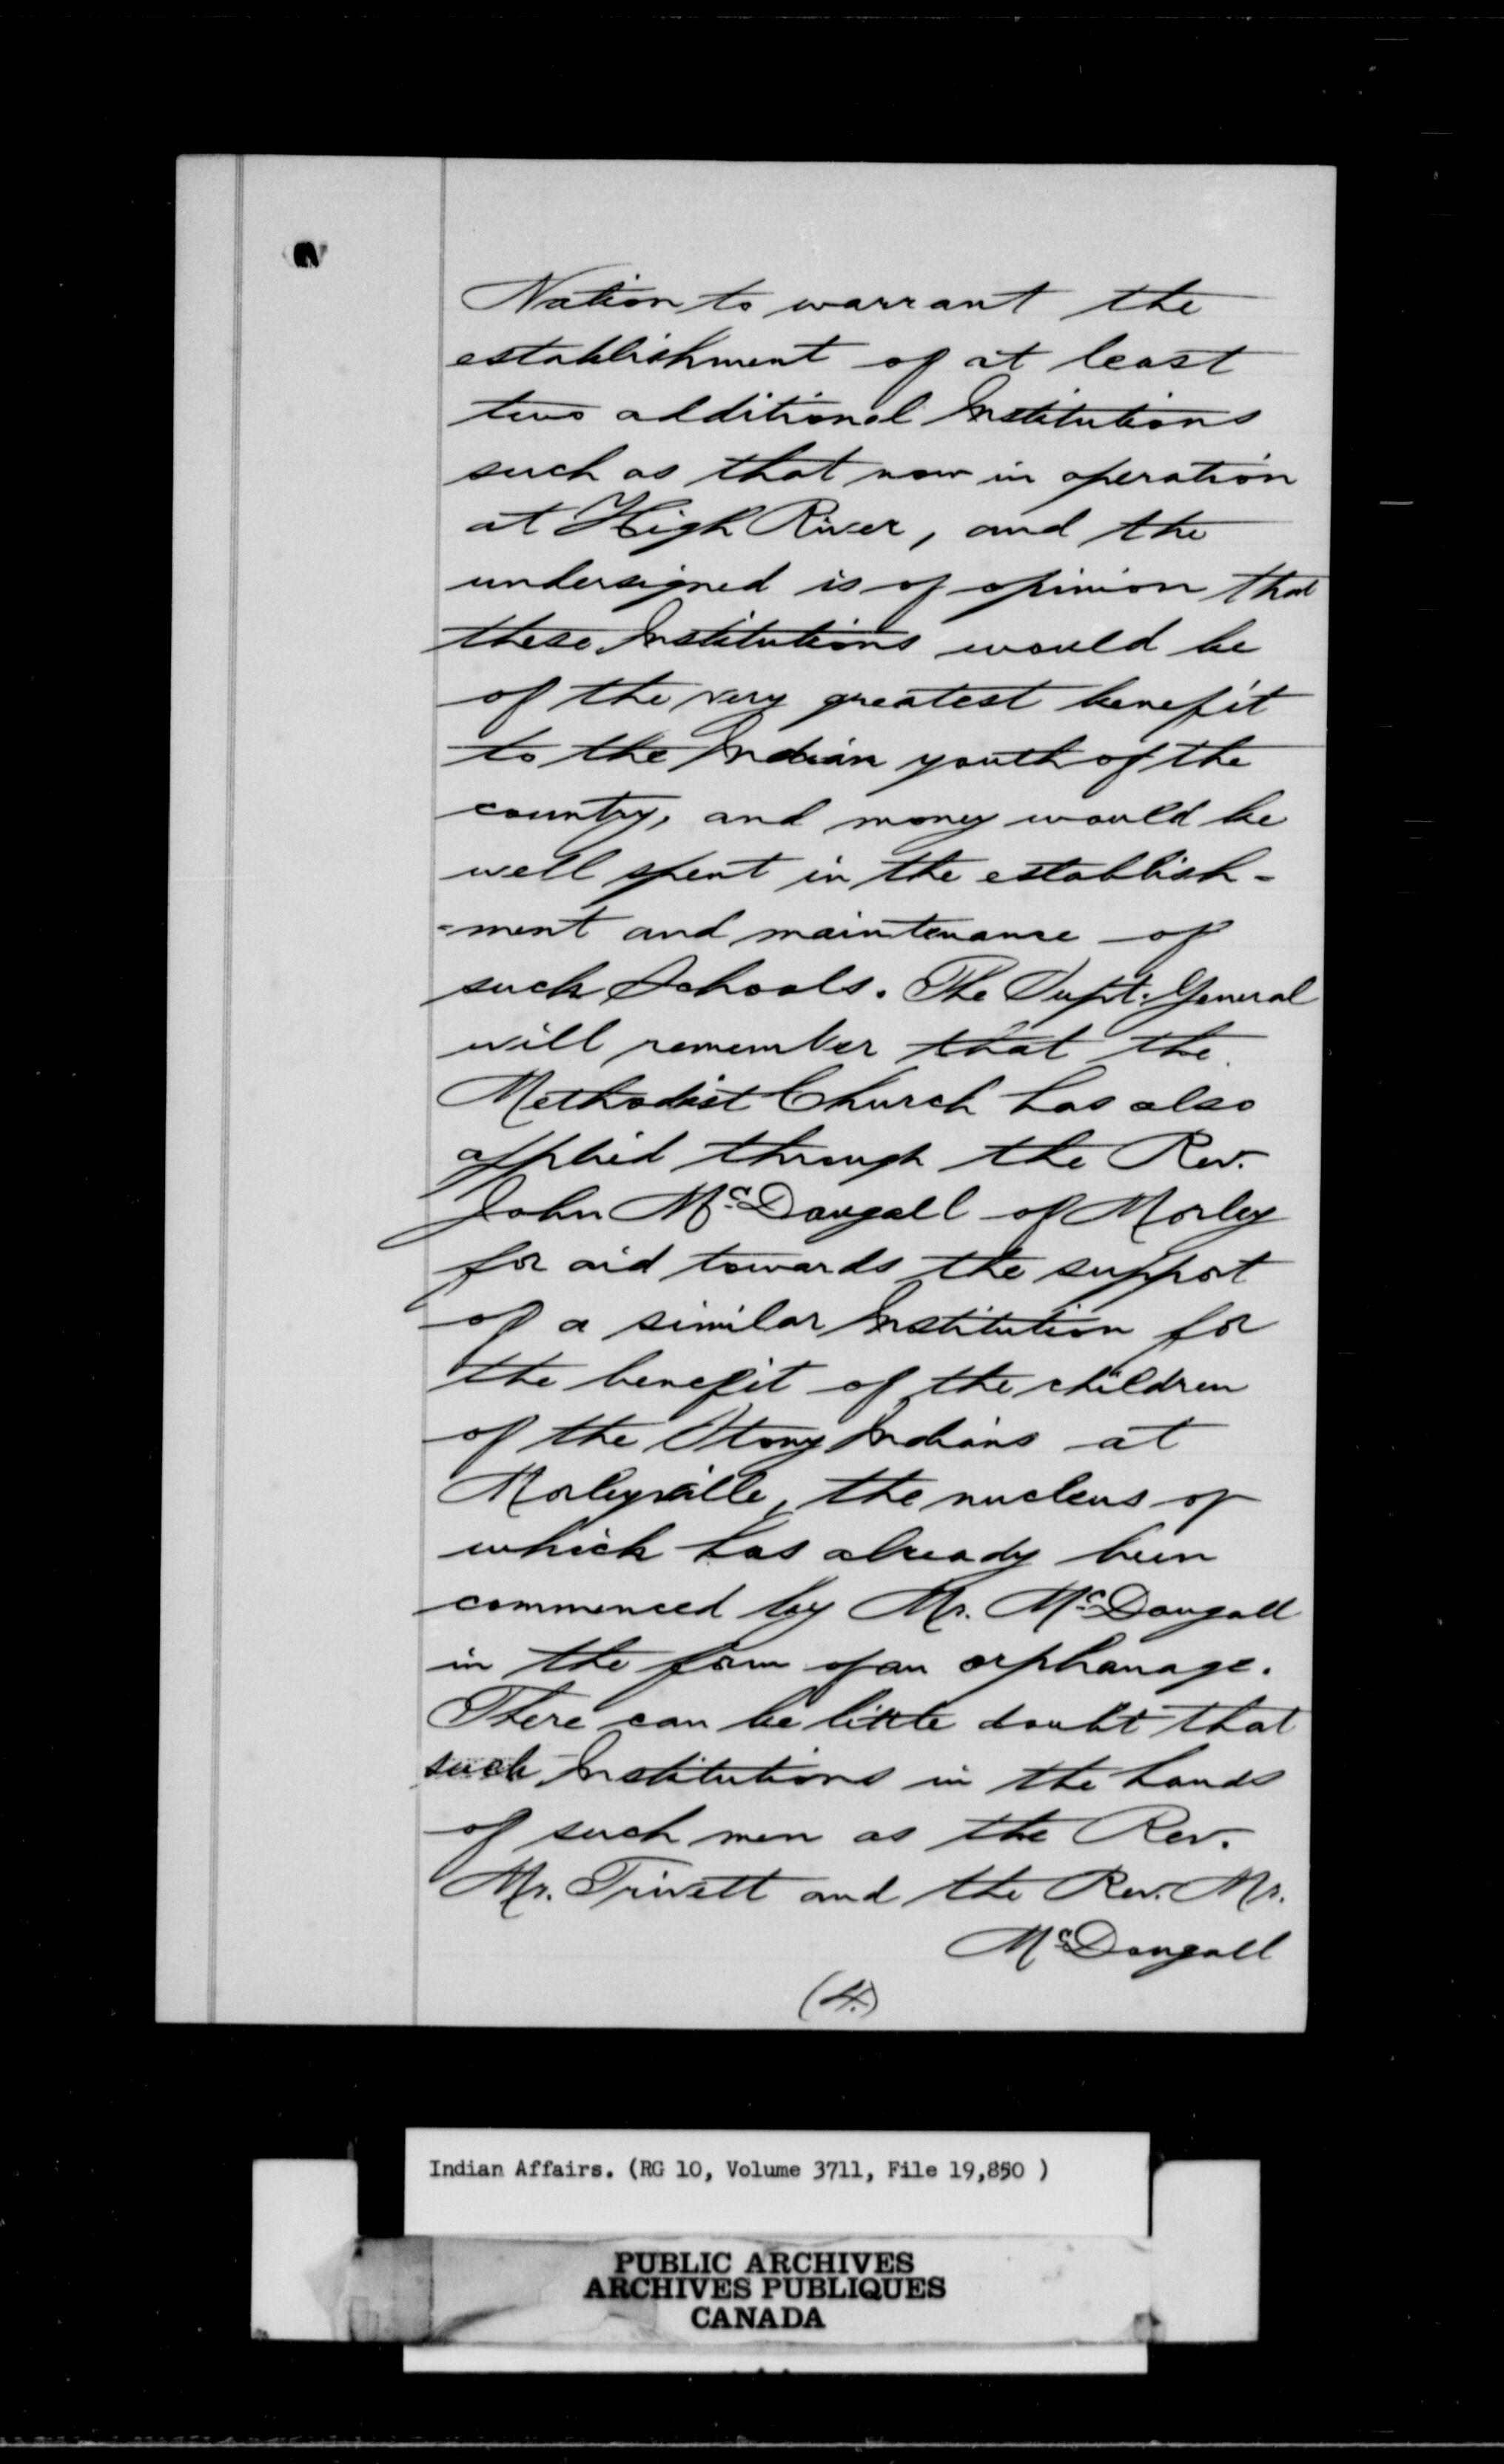 Nation to warrant the
establishment of at least
two additional Institutions
such as that now in operation
at High River, and the
undersigned is of opinion that
these Institutions would be
of the very greatest benefit
to the Indian youth of the
country, and money would be
well spent in the establish-
-ment and maintenance of
such Schools. The Supt. General
will remember that the
Methodist Church has also
applied through the Rev.
John McDougall of Morley
for aid towards the support
of a similar Institution for
the benefit of the children
of the Stony Indians at
Morleyville, the nucleus of
which has already been
commenced by Mr. McDougall
in the form of an orphanage.
There can be little doubt that
such Institutions in the hands
of such men as the Rev.
Mr. Trivett and the Rev. Mr.
McDougall
(4.)
Indian Affairs. (RG 10, Volume 3711, File 19,850 )
PUBLIC ARCHIVES
ARCHIVES PUBLIQUES
CANADA